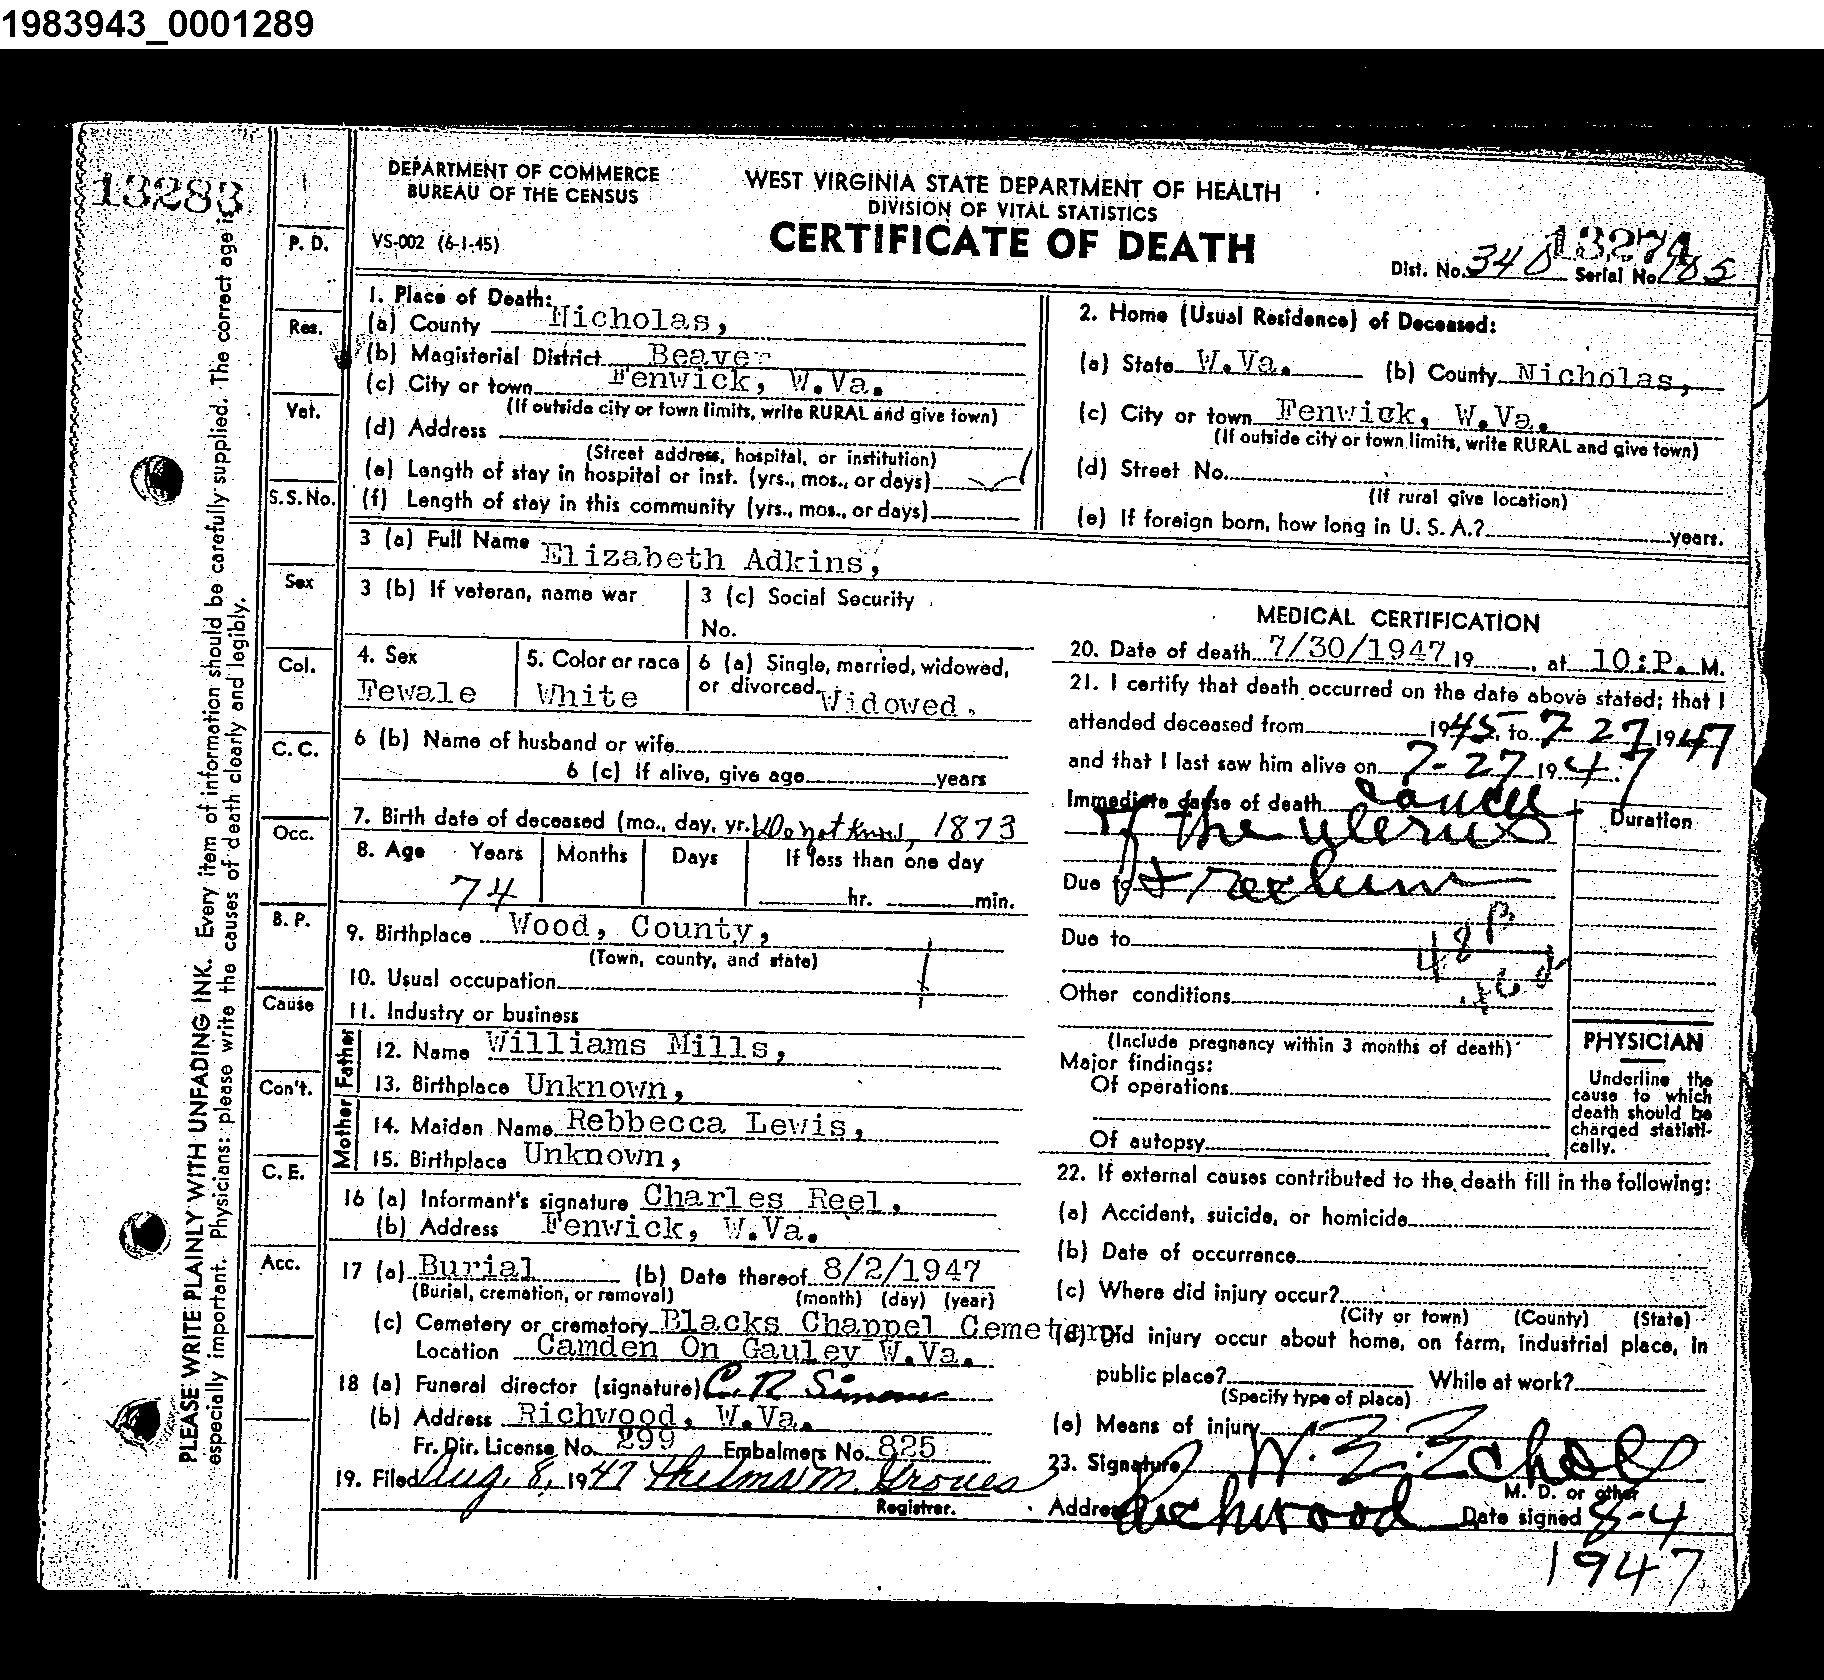 1983943_0001289
13283
DEPARTMENT OF COMMERCE
BUREAU OF THE CENSUS
VS-002 (6-1-45)
WEST VIRGINIA STATE DEPARTMENT OF HEALTH
DIVISION OF VITAL STATISTICS
CERTIFICATE OF DEATH
13274
Dist. No. 340 Serial No. 185
PLEASE WRITE PLAINLY WITH UNFADING INK. Every item of information should be carefully supplied. The correct age is
especially important. Physicians: please write the causes of death clearly and legibly.
P. D.
Res.
Vet.
S.S. No.
Sex
Col.
C. C.
Occ.
B. P.
Cause
Con't.
C. E.
Acc.
1. Place of Death:
(a) County Nicholas,
(b) Magisterial District Beaver
(c) City or town Fenwick, W.Va.
(If outside city or town limits, write RURAL and give town)
(d) Address
(Street address, hospital, or institution)
(e) Length of stay in hospital or inst. (yrs., mos., or days)
(f) Length of stay in this community (yrs., mos., or days)
2. Home (Usual Residence) of Deceased:
(a) State W.Va. (b) County Nicholas,
(c) City or town Fenwick, W.Va.
(If outside city or town limits, write RURAL and give town)
(d) Street No.
(If rural give location)
(e) If foreign born, how long in U. S. A.? years.
3 (a) Full Name Elizabeth Adkins,
3 (b) If veteran, name war
3 (c) Social Security
No.
4. Sex
Fewale
5. Color or race
White
6 (a) Single, married, widowed,
or divorced Widowed.
6 (b) Name of husband or wife
6 (c) If alive, give age years
7. Birth date of deceased (mo., day, yr.) Do not know, 1873
8. Age Years Months Days If less than one day
74 hr. min.
9. Birthplace Wood, County,
(Town, county, and state)
10. Usual occupation
11. Industry or business
Father
12. Name Williams Mills,
13. Birthplace Unknown,
Mother
14. Maiden Name Rebbecca Lewis,
15. Birthplace Unknown,
16 (a) Informant's signature Charles Reel,
(b) Address Fenwick, W.Va.
17 (a) Burial (b) Date thereof 8/2/1947
(Burial, cremation, or removal) (month) (day) (year)
(c) Cemetery or crematory Blacks Chappel Cemetery
Location Camden On Gauley W.Va.
18 (a) Funeral director (signature) C. R. Simons
(b) Address Richwood, W.Va.
Fr. Dir. License No. 299 Embalmers No. 825
19. Filed Aug. 8, 1947 Thelma M. Groves
Registrar.
MEDICAL CERTIFICATION
20. Date of death 7/30/1947 19 , at 10:P. M.
21. I certify that death occurred on the date above stated; that I
attended deceased from 1945, to 7-27 1947
and that I last saw him alive on 7-27 1947
Immediate cause of death cancer
of the uterus
Duration
Due to + rectum
Due to
48 B
46 d
Other conditions
(Include pregnancy within 3 months of death)
Major findings:
Of operations
Of autopsy
PHYSICIAN
Underline the
cause to which
death should be
charged statisti-
cally.
22. If external causes contributed to the death fill in the following:
(a) Accident, suicide, or homicide
(b) Date of occurrence
(c) Where did injury occur?
(City or town) (County) (State)
(d) Did injury occur about home, on farm, industrial place, in
public place? While at work?
(Specify type of place)
(e) Means of injury
23. Signature W. E. Echols
M. D. or other
Address Richwood Date signed 8-4
1947